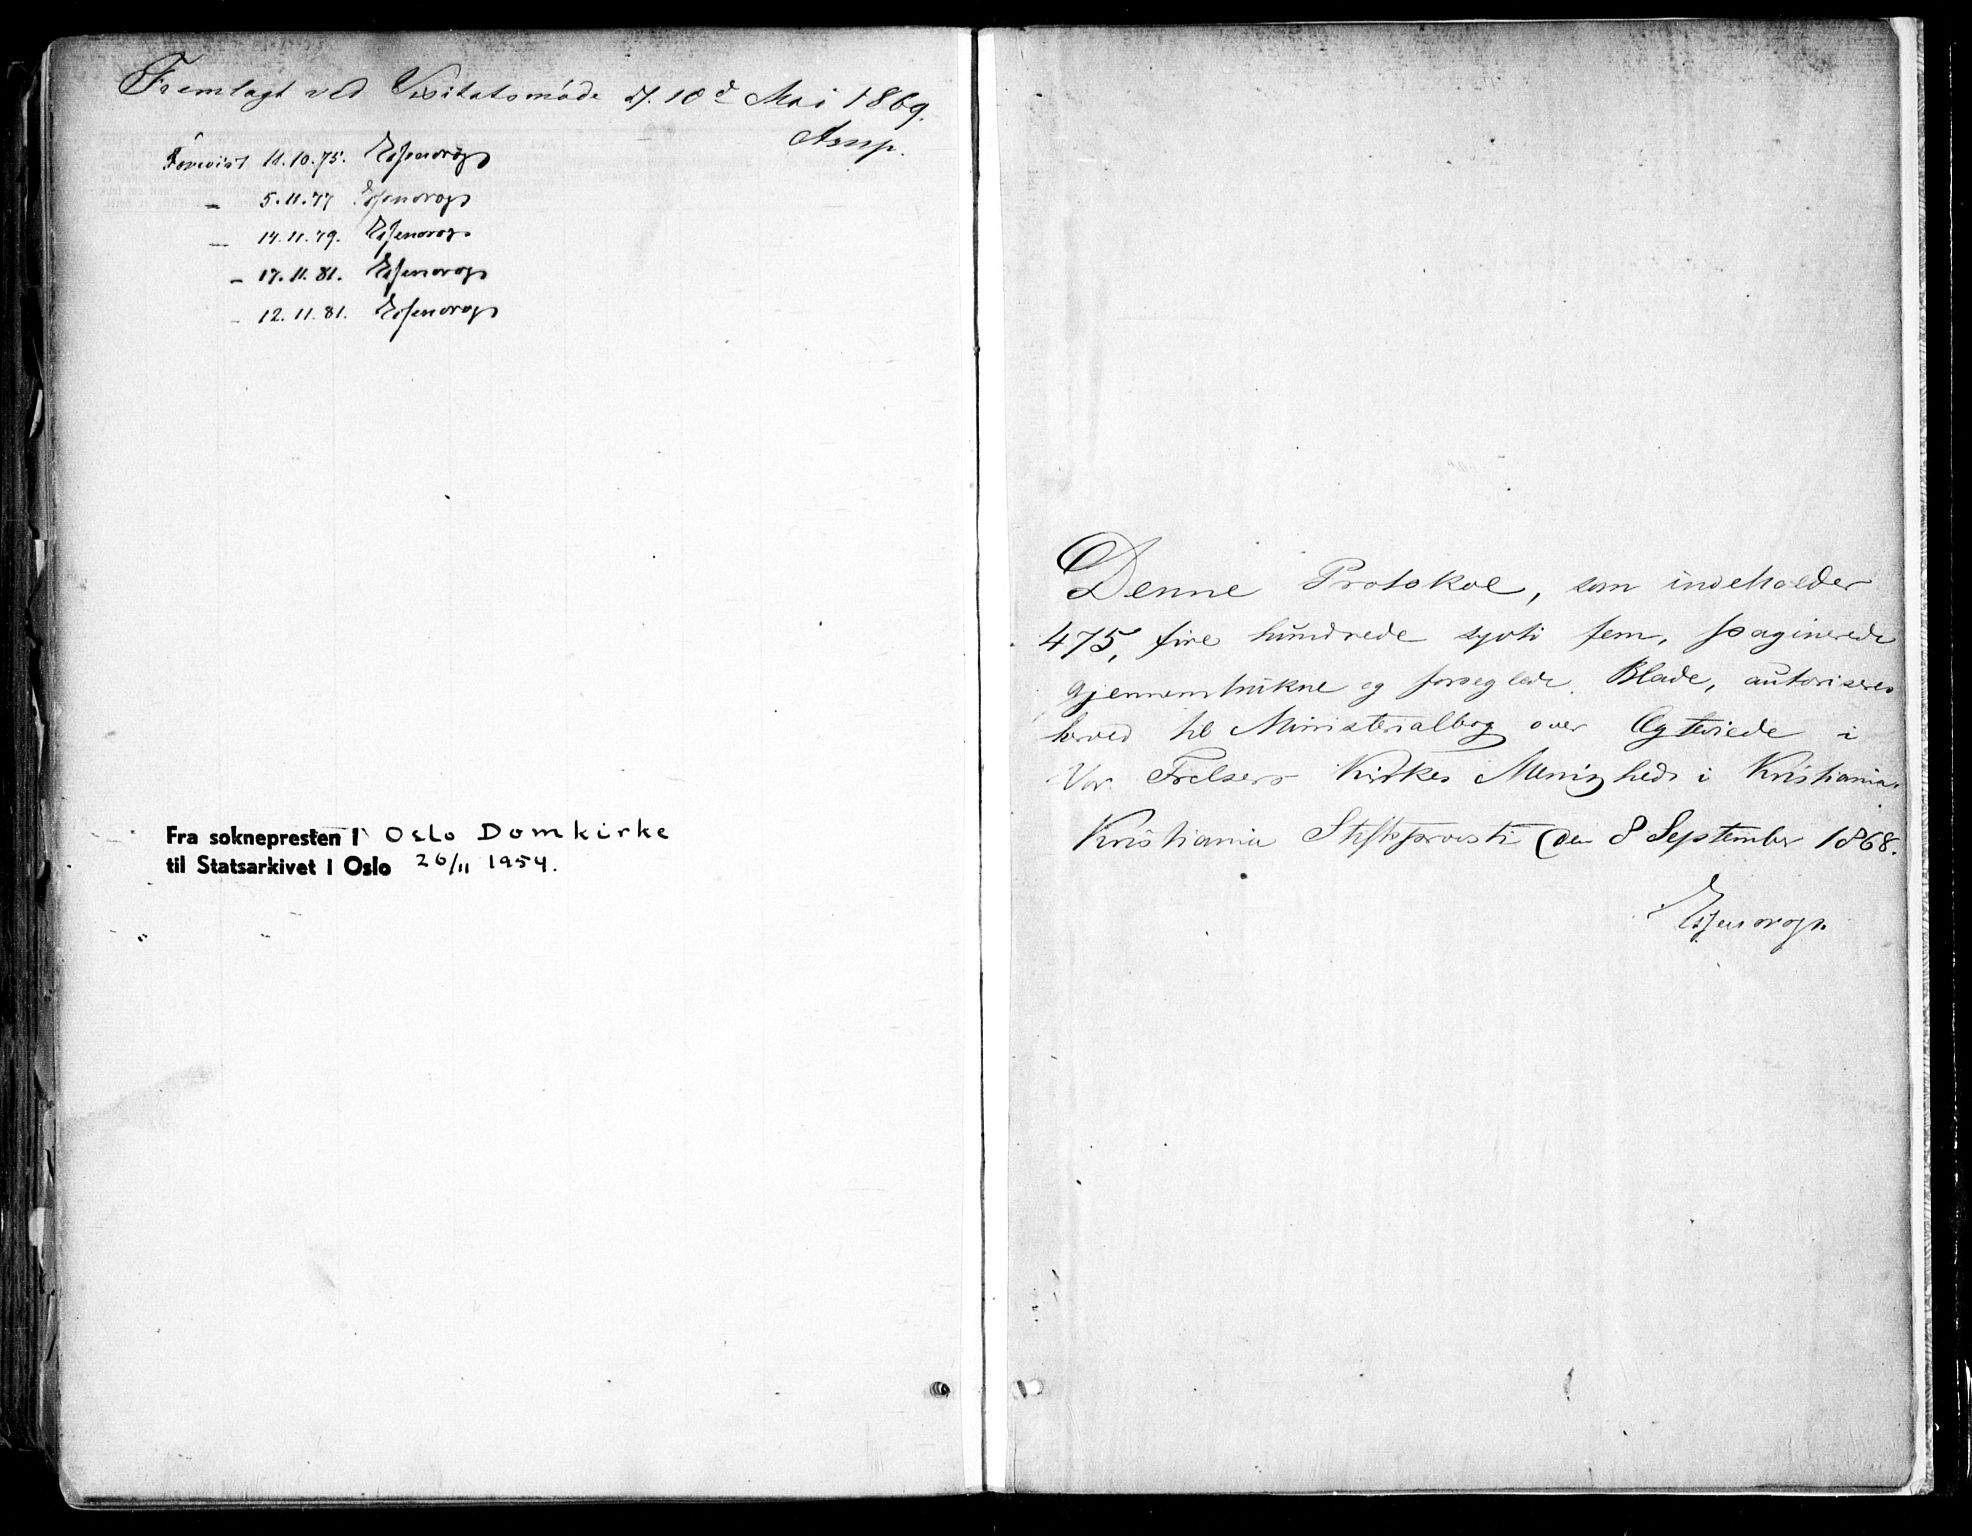 Fremlagt ved Visitatsmöde d. 10d Mai 1869.
Arup.
Forevist 11.10.75. Essendrop
- 5.11.77 Essendrop
- 14.11.79. Essendrop
- 17.11.81. Essendrop
- 12.11.81. Essendrop
Fra soknepresten i Oslo Domkirke
til Statsarkivet i Oslo 26/11 1954.
Denne Protokol, som indeholder
475, fire hundrede syvti fem, paginerede
gjennemtrukne og forseglede Blade, autoriseres
herved til Ministerialbog over Ægteviede i
Vor Frelsers Kirkes Menighed i Kristiania.
Kristiania Stiftsprovsti den 8 September 1868.
Essendrop.